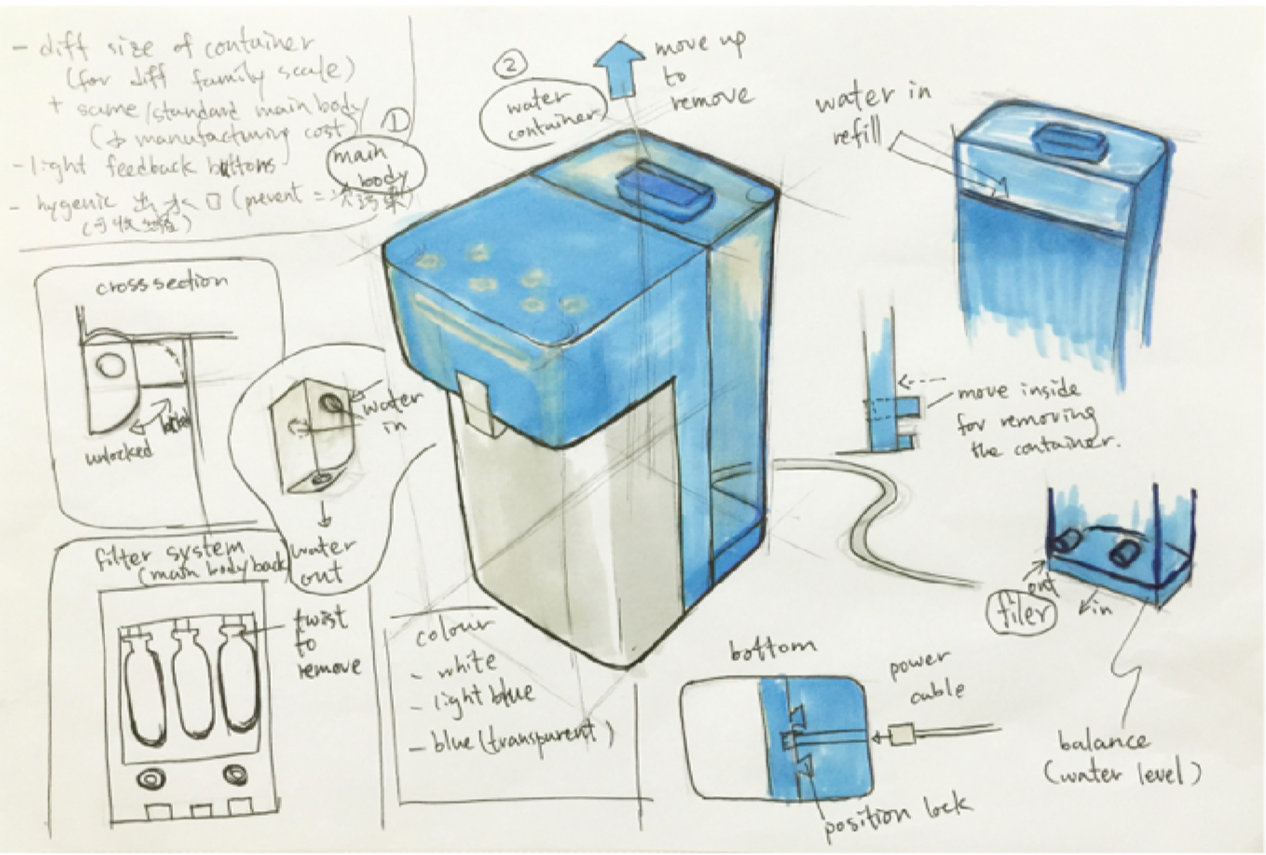 - diff size of container
(for diff family scale)
+ same/standard main body
(↓ manufacturing cost)
- light feedback buttons
- hygenic 出水口 (prevent 二次污染)
①
main body
②
water container
move up
to
remove
water in
refill
cross section
unlocked
locked
water
in
water
out
move inside
for removing
the container.
filter system
(main body back)
twist
to
remove
colour
- white
- light blue
- blue (transparent)
out
in
filer
bottom
power
cable
position lock
balance
(water level)